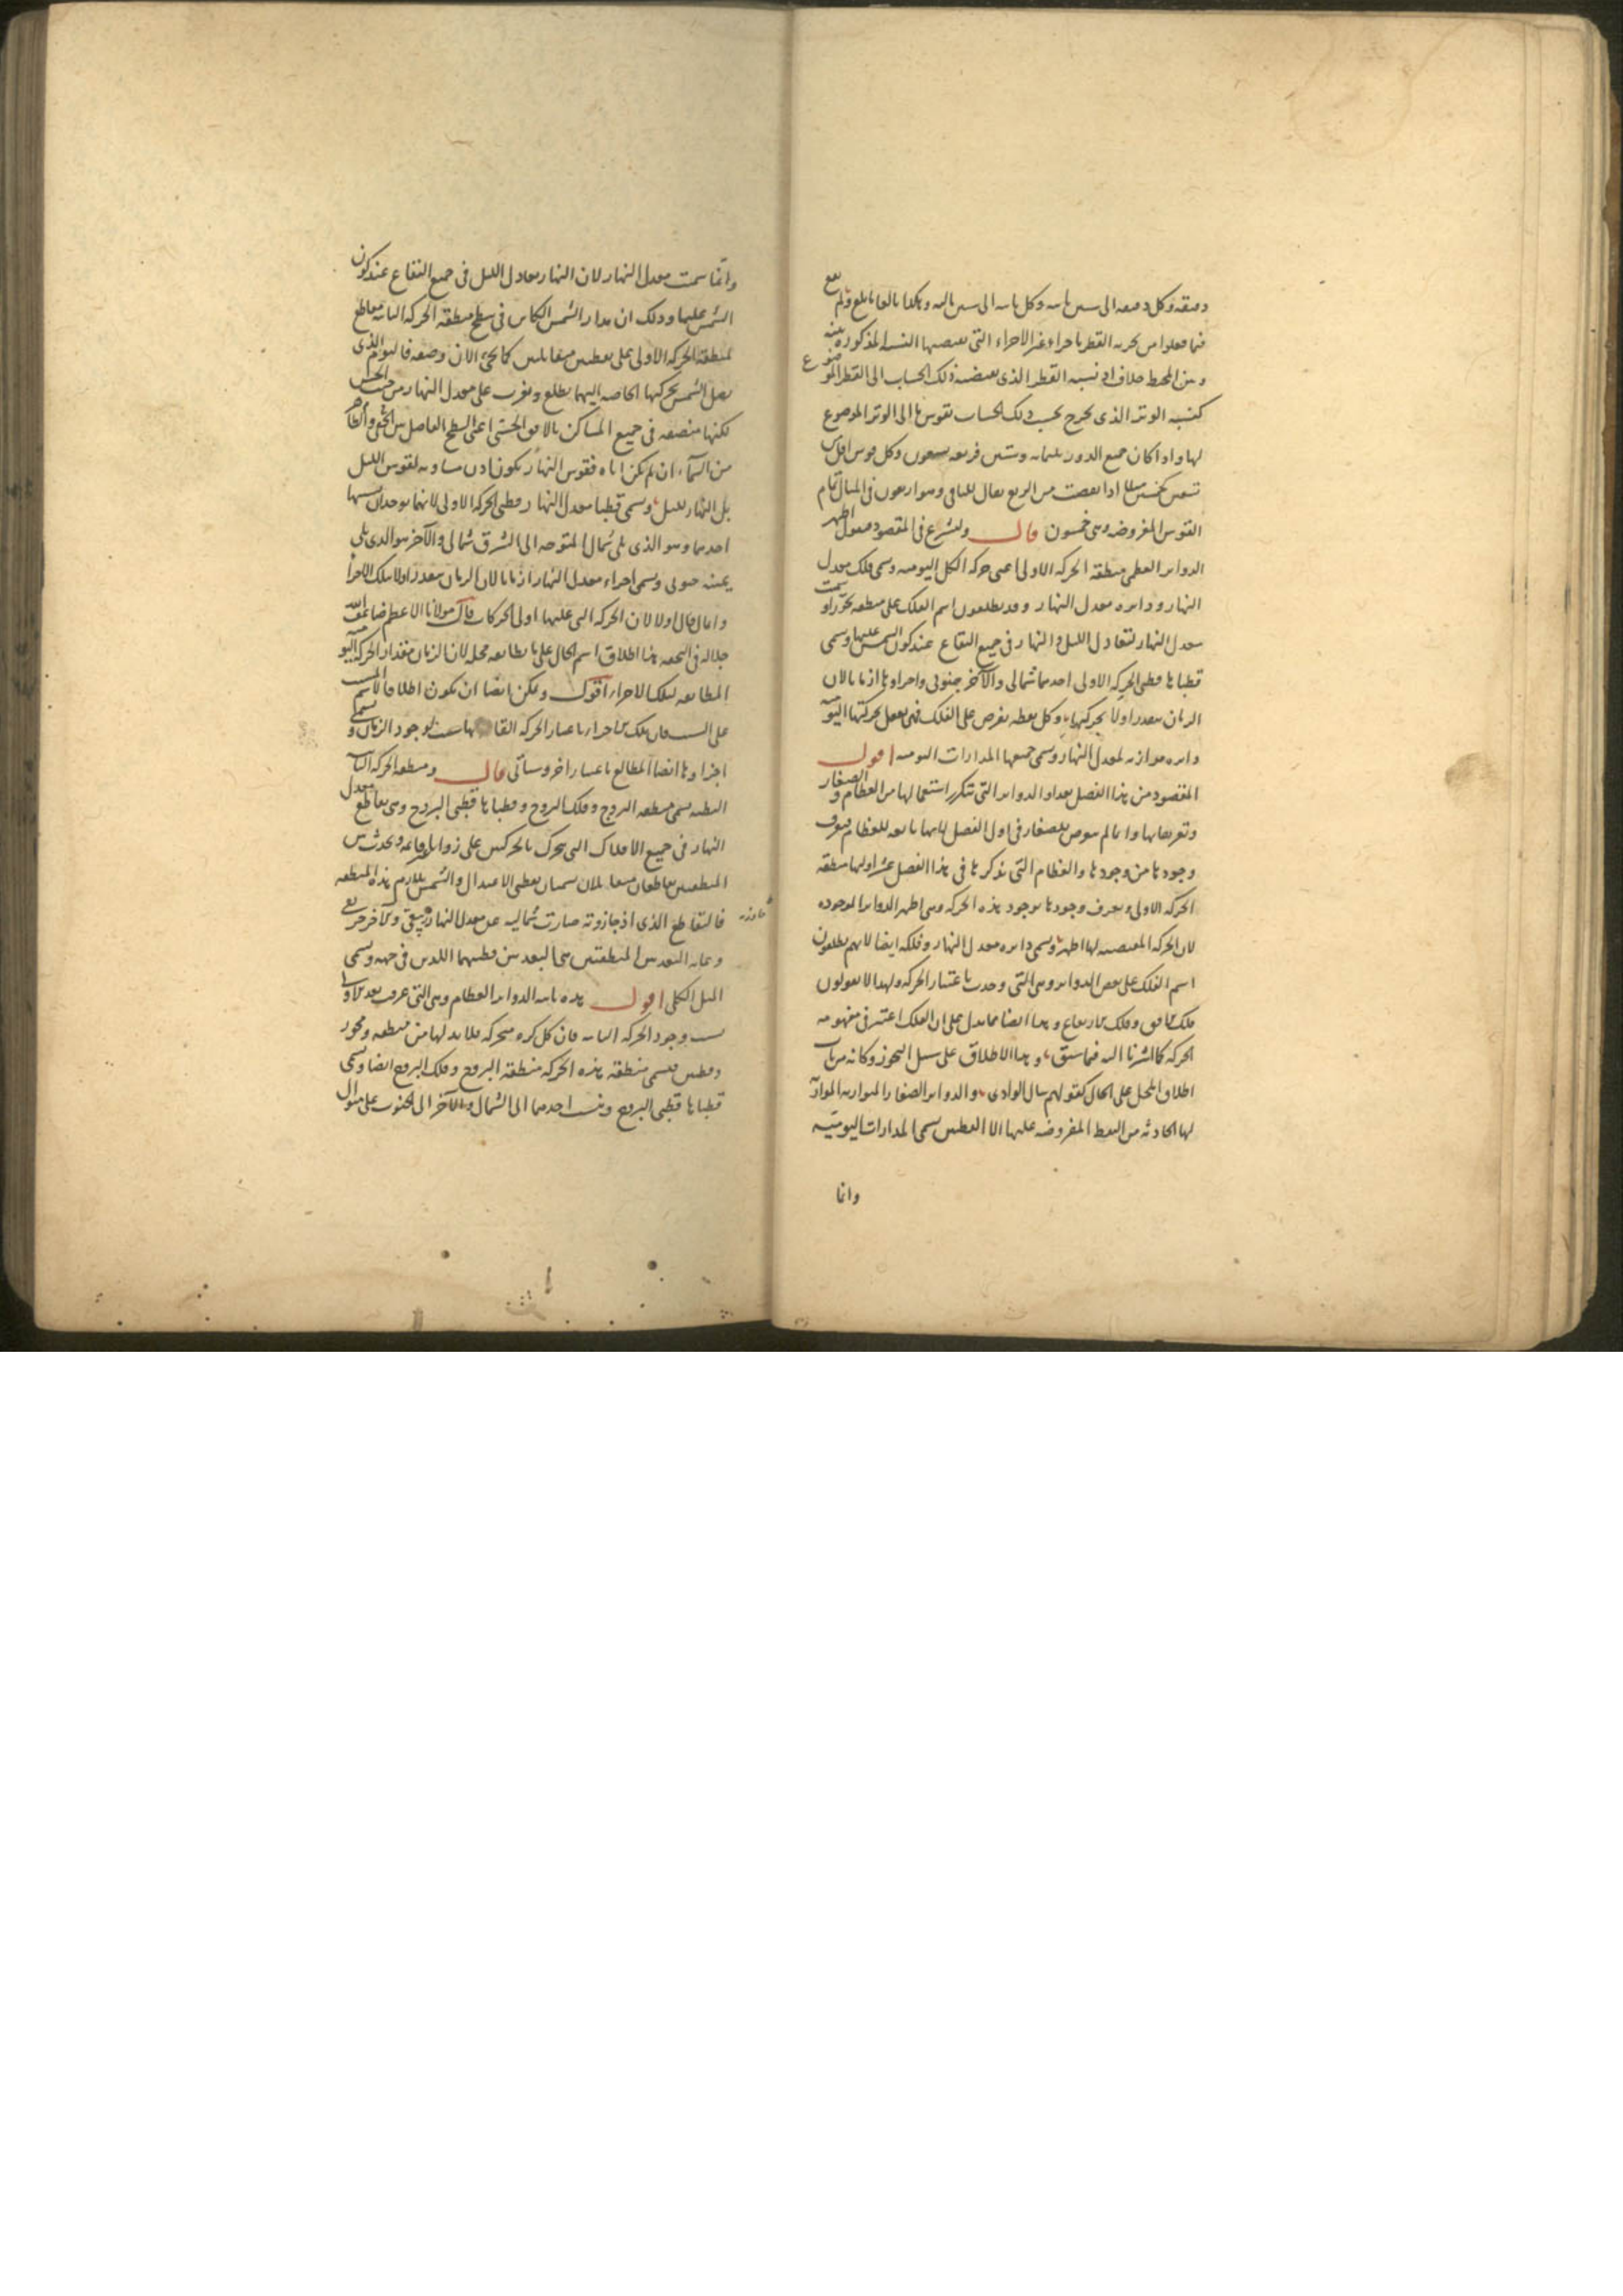 دقيقه وكل دقيقه الى ستين ثانيه وكل ثانيه الى ستين ثالثه وهكذا بالغا ما بلغ ولم يقع
فيما فعلوا من تجزيه القطر باجزاء غير الاجزاء التي تقتضيها النسبة المذكوره بينه
وبين المحيط خلاف اذ نسبه القطر الذى يقتضيه ذلك الحساب الى القطر الموضوع
كنسبه الوتر الذى يخرج بحسب ذلك الحساب لقوس ما الى الوتر الموضوع
لها واذا كان جميع الدور ثلثمايه وستين فربعه تسعون وكل قوس اقل من
تسعين كخمسين مثلا اذا نقصت من الربع يقال للباقى وهو اربعون فى المثال تمام
القوس المفروضه وهى خمسون قال ولنشرع فى المقصود فنقول اظهر
الدواير العظمى منطقة الحركه الاولى اعنى حركه الكل اليوميه وتسمى فلك معدل
النهار ودايره معدل النهار وقد يطلقون اسم الفلك على منطقته تجوزا وسميت
معدل النهار لتعادل الليل والنهار فى جميع البقاع عند كون الشمس عليها وتسمى
قطباها قطبى الحركه الاولى احدهما شمالى والآخر جنوبى واجزاوها ازمانا لان
الزمان يتقدر اولا بحركتها وكل نقطه تفرض على الفلك فهى تفعل بحركتها اليوميه
دايره موازيه لمعدل النهار وتسمى جميعها المدارات اليوميه اقول
المقصود من هذا الفصل تعداد الدواير التى تتكرر استعمالها من العظام والصغار
وتعريفاتها وانما لم يتعرض للصغار فى اول الفصل لانها تابعه للعظام فيعرف
وجودها من وجودها والعظام التى يذكرها فى هذا الفصل عشر اولها منطقة
الحركه الاولى ويعرف وجودها بوجود هذه الحركه وهى اظهر الدواير الموجوده
لان الحركه المقتضيه لها اظهر وتسمى دايره معدل النهار وفلكه ايضا لانهم يطلقون
اسم الفلك على بعض الدواير وهى التى وجدت باعتبار الحركه ولهذا لا يقولون
فلك الافق وفلك الارتفاع وهذا ايضا مما يدل على ان الفلك اعتبر فى مفهومه
الحركه كما اشرنا اليه فيما سبق وهذا الاطلاق على سبيل التجوز وكانه من باب
اطلاق المحل على الحال كقولهم سال الوادى والدواير الصغار المتوازيه الموازيه
لها الحادثه من النقط المفروضه عليها الا القطبين تسمى المدارات اليوميّه
وانما
وانّما سميت معدل النهار لان النهار يعادل الليل فى جميع البقاع عند كون
الشمس عليها وذلك ان مدار الشمس الكاين فى سطح منطقة الحركه الثانيه مقاطع
لمنطقة الحركه الاولى على نقطتين متقابلتين كما يجىء الان وصفه فاليوم الذى
تصل الشمس بحركتها الخاصه اليهما تطلع وتغرب على معدل النهار من حيث الحس
لكنها منصفه فى جميع المساكن بالافق الحسى اعنى السطح الفاصل بين الخفى والظاهر
من السمآء ان لم تكن اياه فقوس النهار تكون اذن مساويه لقوس الليل
بل النهار لليل وتسمى قطبا معدل النهار قطبى الحركه الاولى لانهما يوجدان بسببها
احدهما وهو الذى يلى شمال المتوجه الى الشرق شمالى والآخر وهو الذى يلى
يمينه جنوبى وتسمى اجزاء معدل النهار ازمانا لان الزمان يتقدر اولا بتلك الاجزا
وانما قال اولا لان الحركه التى عليها اولى الحركات قال مولانا الاعظم ضاعف الله
جلاله فى التحفه هذا اطلاق اسم الحال على ما يطابقه محله لان الزمان مقدار الحركه اليوميه
المطابقه لتلك الاجزاء اقول ويمكن ايضا ان يكون اطلاقا لاسم المسبب
على السبب فان تلك الاجزاء باعتبار الحركه القائمه بها سبب لوجود الزمان وتسمى
اجزاوها ايضا المطالع باعتبار اخر وسياتى قال ومنطقة الحركه الثانيه
البطيه تسمى منطقه البروج وفلك البروج وقطباها قطبى البروج وهى تقاطع معدل
النهار فى جميع الافلاك التى تتحرك بالحركتين على زوايا غير قايمه ويحدث بين
المنطقتين تقاطعان متقابلان يسميان نقطتى الاعتدال والشمس تلازم هذه المنطقه
فالتقاطع الذى اذ جازوته صارت شماليه عن معدل النهار ربيعى والآخر خريفى
وغايه البعد بين المنطقتين هى البعد بين قطبيهما اللذين فى جهه وتسمى
الميل الكلى اقول هذه ثانيه الدواير العظام وهى التى عرفت بعد الاولى
بسبب وجود الحركه الثانيه فان كل كره متحركه فلا بد لها من منطقه ومحور
وقطبين فتسمى منطقة هذه الحركه منطقة البروج وفلك البروج ايضا وتسمى
قطباها قطبى البروج وينسب احدهما الى الشمال والآخر الى الجنوب على منوال